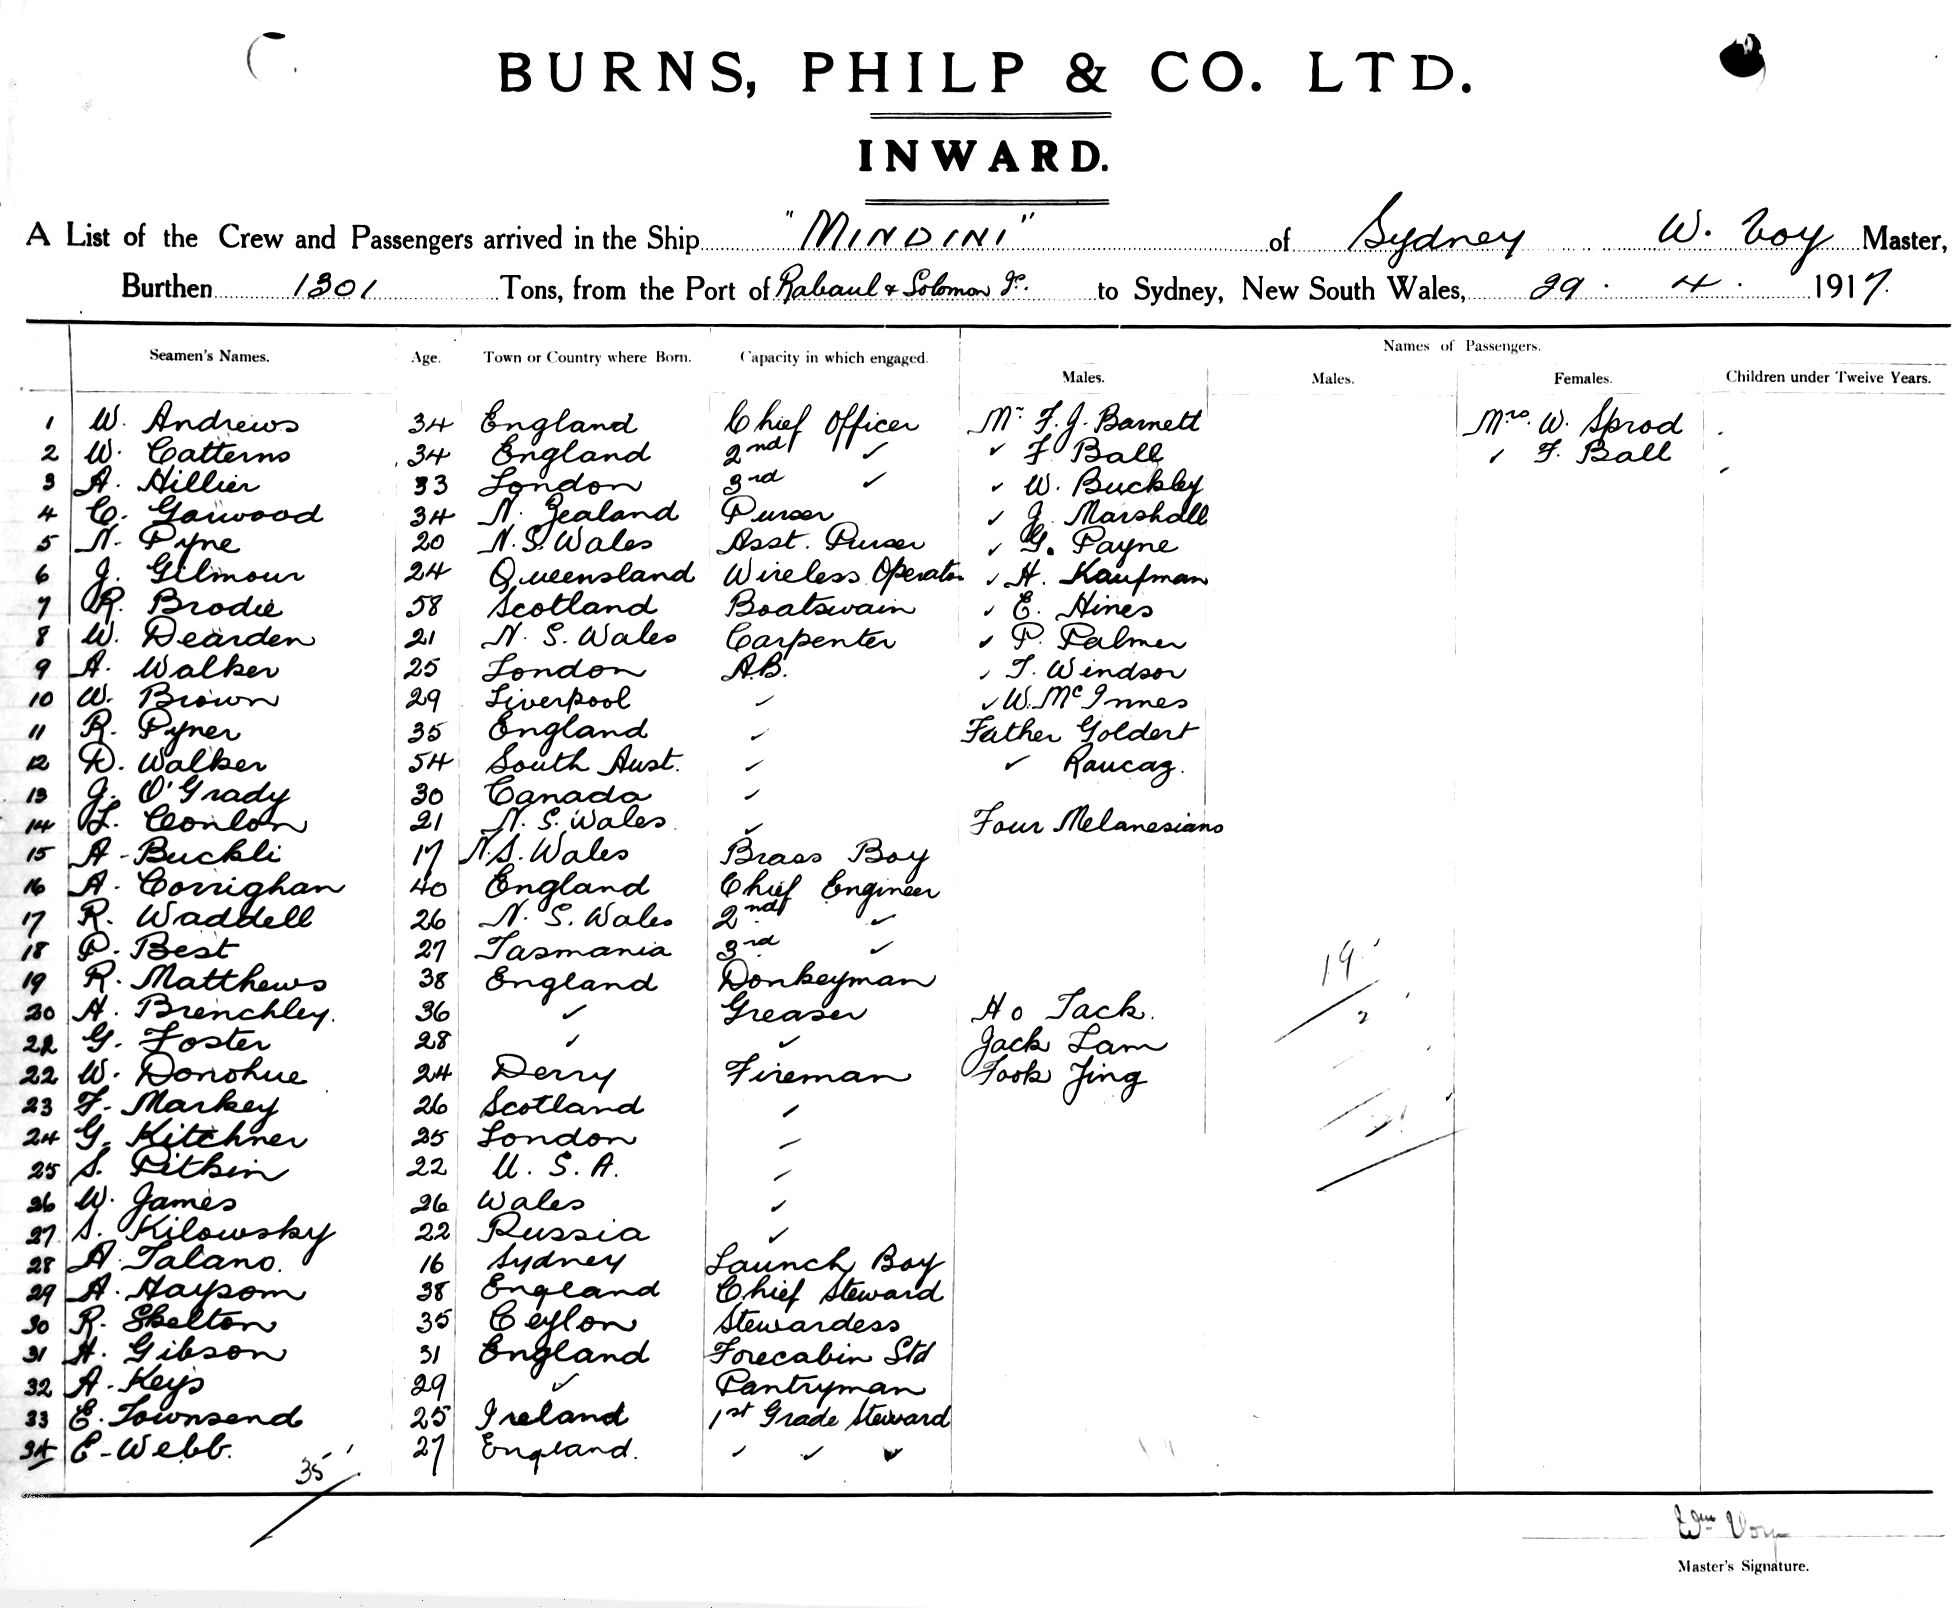 BURNS, PHILP & CO. LTD.
INWARD.
A List of the Crew and Passengers arrived in the Ship "MINDINI" of Sydney W. Voy Master,
Burthen 1301 Tons, from the Port of Rabaul & Solomon Is. to Sydney, New South Wales, 29. 4. 1917.
Seamen's Names. Age. Town or Country where Born. Capacity in which engaged. Names of Passengers.
Males. Males. Females. Children under Twelve Years.
1 W. Andrews 34 England Chief Officer Mr F. J. Barnett Mrs. W. Sprod
2 W. Catterns 34 England 2nd ✓ ✓ F Ball ✓ F. Ball
3 A. Hillier 33 London 3rd ✓ ✓ W. Buckley
4 C. Garwood 34 N. Zealand Purser ✓ J. Marshall
5 N. Pyne 20 N.S. Wales Asst. Purser ✓ G. Payne
6 J. Gilmour 24 Queensland Wireless Operator ✓ H. Kaufman
7 R. Brodie 58 Scotland Boatswain ✓ E. Hines
8 W. Dearden 21 N. S. Wales Carpenter ✓ P. Palmer
9 A. Walker 25 London A.B. ✓ T. Windsor
10 W. Brown 29 Liverpool ✓ ✓ W. Mc Innes
11 R. Pyner 35 England ✓ Father Goldert
12 D. Walker 54 South Aust. ✓ ✓ Raucaz.
13 J. O'Grady 30 Canada ✓
14 L. Conlon 21 N. S. Wales ✓ Four Melanesians
15 A. Buckli 17 N.S. Wales Brass Boy
16 A. Corrighan 40 England Chief Engineer
17 R. Waddell 26 N. S. Wales 2nd ✓
18 P. Best 27 Tasmania 3rd ✓
19 R. Matthews 38 England Donkeyman 19
20 H. Brenchley. 36 ✓ Greaser Ho Tack. 2
22 G. Foster 28 ✓ ✓ Jack Lam
22 W. Donohue 24 Derry Fireman Fook Jing
23 F. Markey 26 Scotland ✓
24 G. Kitchner 25 London ✓
25 S. Pitkin 22 U. S. A. ✓
26 W. James 26 Wales ✓
27 S. Kilowsky 22 Russia ✓
28 A. Talano. 16 Sydney Launch Boy
29 A. Haysom 38 England Chief Steward
30 R. Skelton 35 Ceylon Stewardess
31 H. Gibson 31 England Forecabin Std
32 A. Keys 29 ✓ Pantryman
33 E. Townsend 25 Ireland 1st Grade Steward
34 E. Webb. 27 England. ✓ ✓ ✓
35
Wm Voy
Master's Signature.